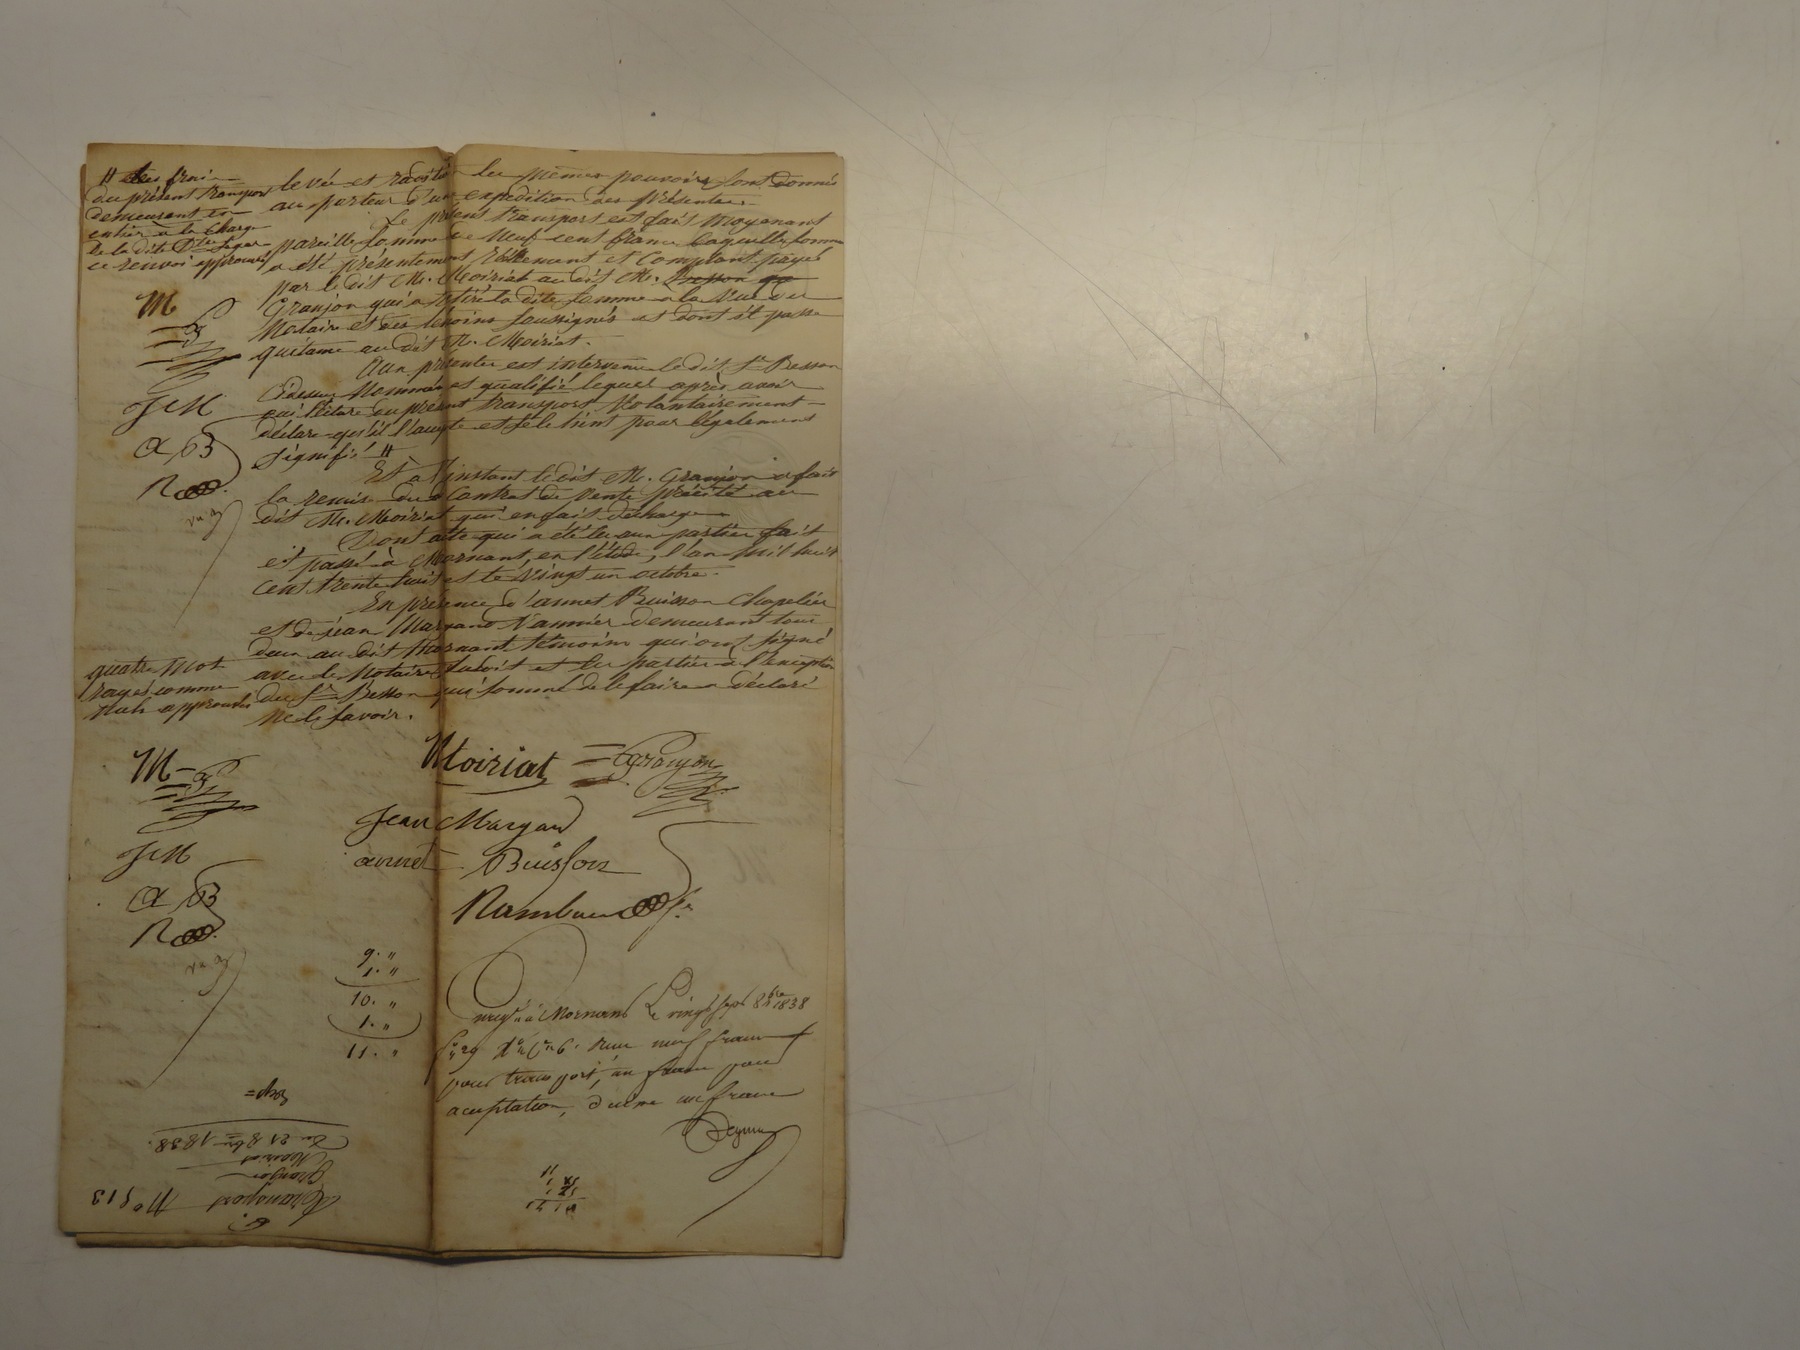 levée et radiation les mêmes pouvoirs sont donnés
au porteur d'une expédition des présentes.
Le présent transport est fait moyenant
pareille somme de neuf cent francs laquelle somme
a été présentement réellement et comptant payé
par le dit M. Moiriat au dit M. Besson
Granjon qui a retiré la dite somme a la vue du
Notaire et des témoins soussignés et dont il passe
quitance au dit M. Moiriat.
Aux présentes est intervenu le dit Sr Besson
Cidessus nommé et qualifié lequel après avoir
oui lecture du présent transport volontairement
déclare qu'il l'accepte et se le tient pour légalement
signifié #
Et à l'instant le dit M. Granjon a fait
la remise du contrat de vente précité au
dit M. Moiriat qui en fait décharge
Dont acte qui a été lu aux parties fait
et passé à Mornant, en l'étude, l'an mil huit
cent trente huit et le vingt un octobre.
En présence d'annet Buisson Chapelier
et de jean Margand Vannier demeurant tous
deux au dit Mornant témoins qui ont signé
avec le Notaire et les parties à l'exception
du Sr Besson qui sommé de le faire a déclaré
ne le savoir.
# Les frais
du présent transport
demeurent en
entier a la charge
de la dite
ce renvoi approuvé
M
JM
A B
R
quatre mot
rayés comme
nuls approuvés
M
JM
A B
R
Moiriat = Granjon
Jean Margand
annet Buisson
9. "
1. "
10. "
1. "
11. "
à Mornant Le vingt sept 8bre 1838
neuf francs
pour transport, un franc pour
acceptation, dixième un franc
11
Transport
Granjon
Moiriat
Du 21 8bre 1838.
N° 513